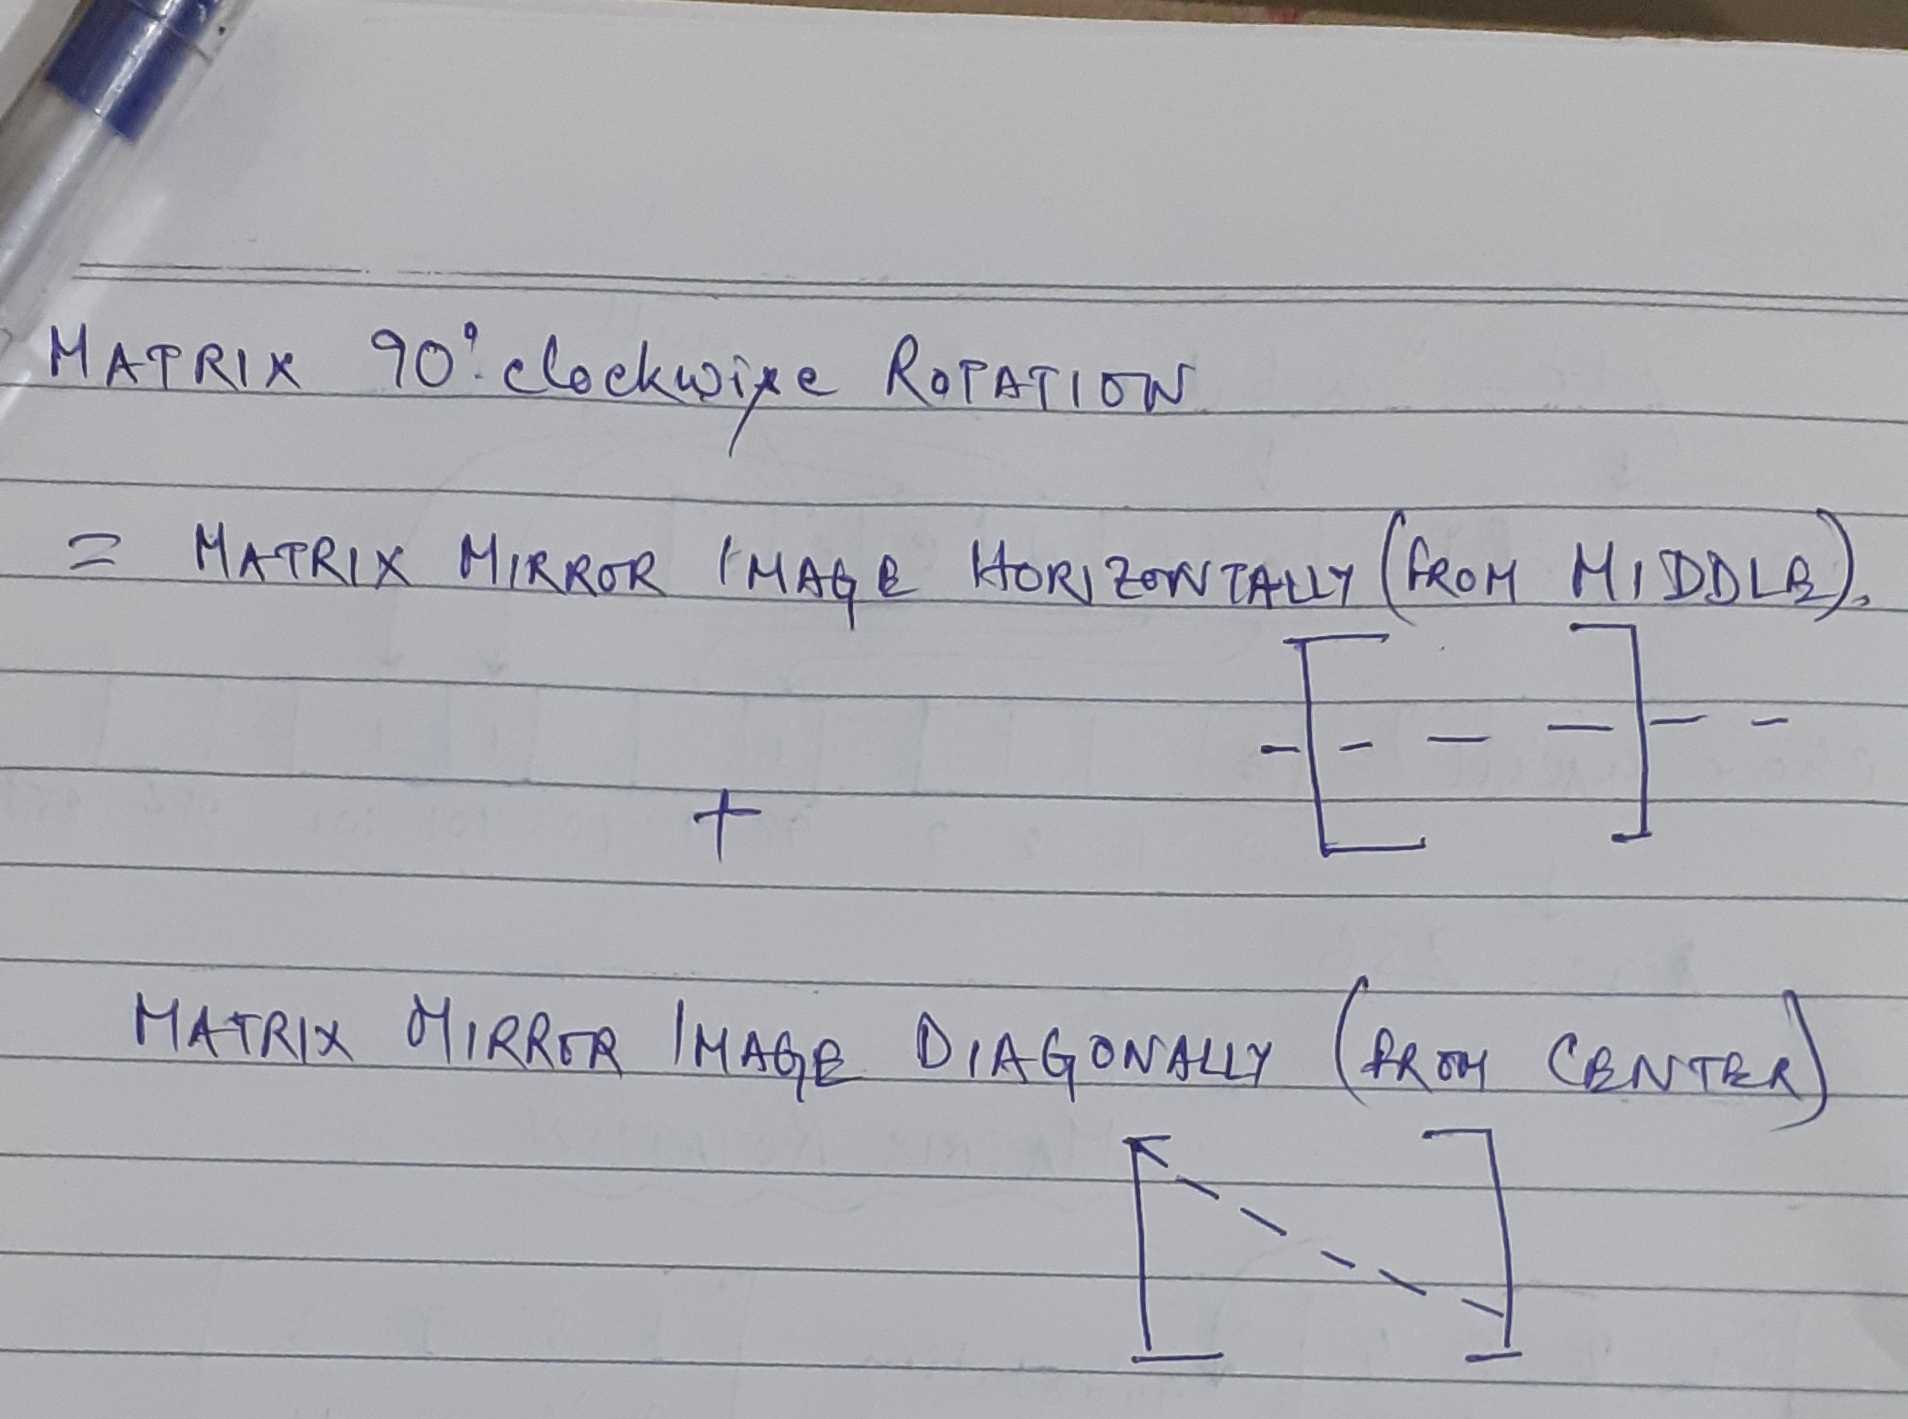 MATRIX 90° clockwise ROTATION
= MATRIX MIRROR IMAGE HORIZONTALLY (FROM MIDDLE).
+
MATRIX MIRROR IMAGE DIAGONALLY (FROM CENTER)